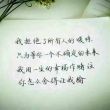 我拒绝了所有人的暧昧
只为等你一个不确定的未来
我用一生的幸福作赌注
你怎么舍得让我输